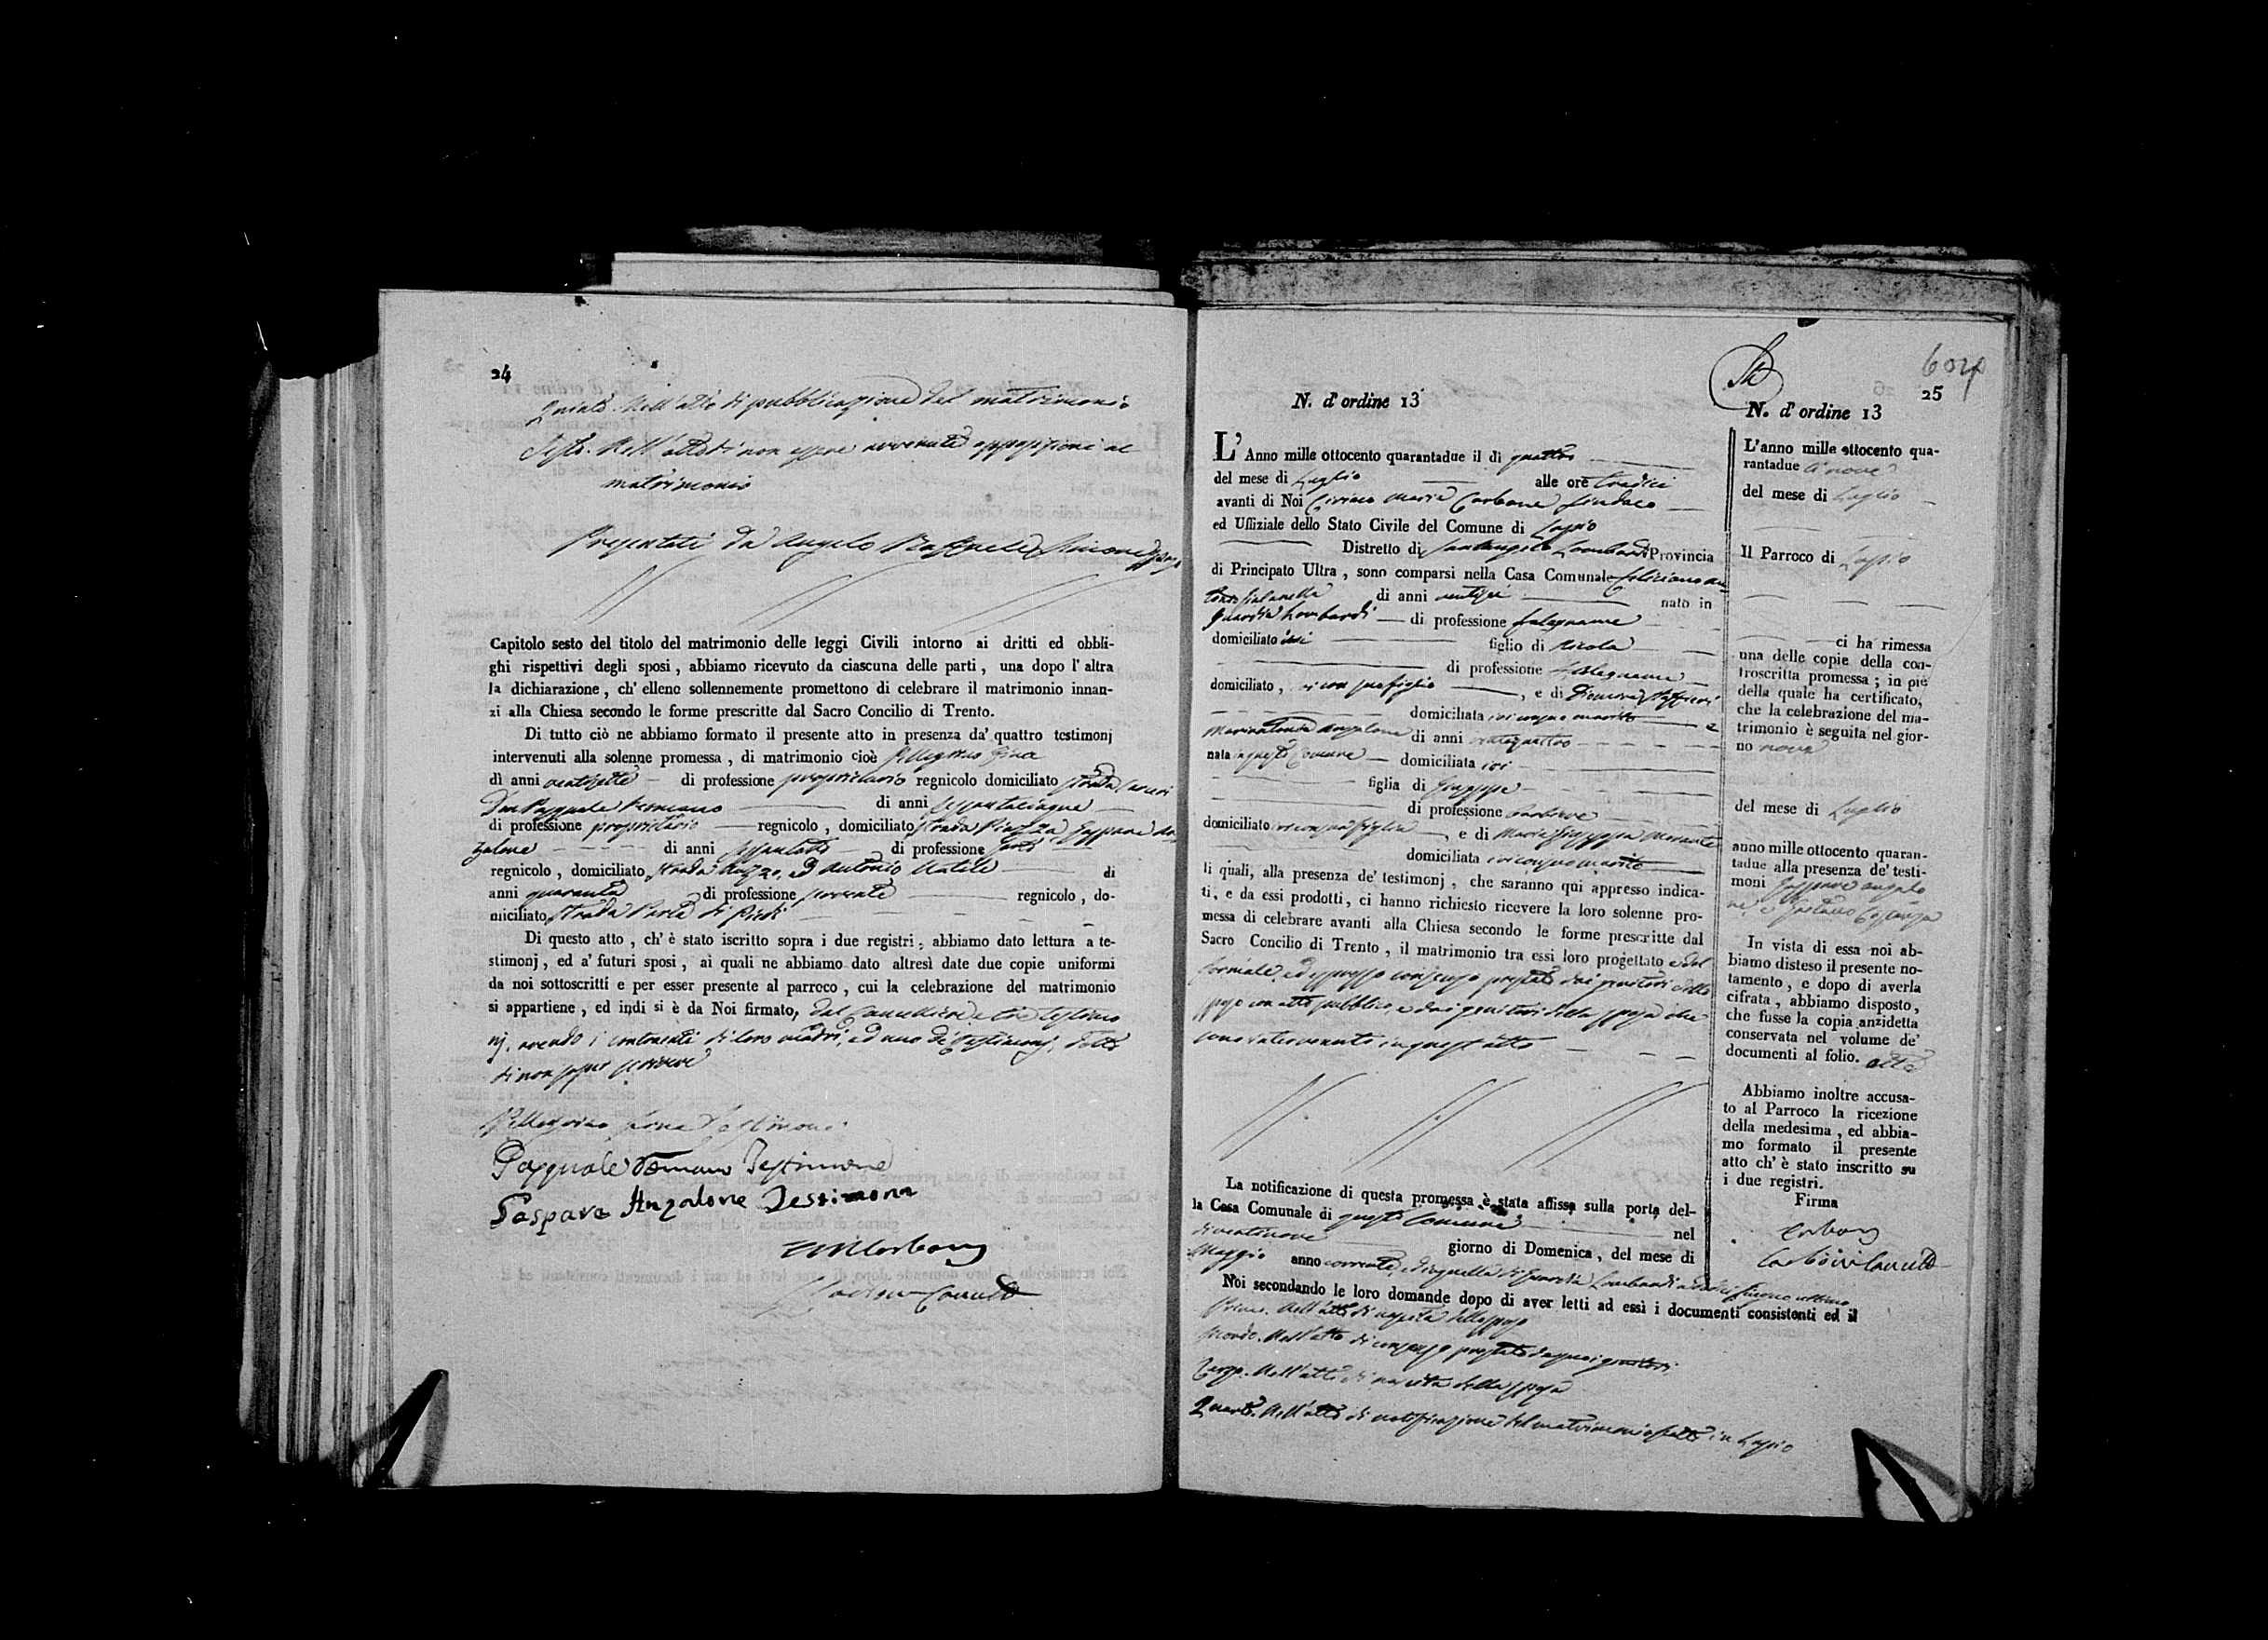 24
Quinto. Nell'atto di pubblicazione del matrimonio
Sesto. Nell'atto di non essere avvenuta opposizione al
matrimonio
Presentati da Angelo Raffaele
Capitolo sesto del titolo del matrimonio delle leggi Civili intorno ai dritti ed obbli-
ghi rispettivi degli sposi, abbiamo ricevuto da ciascuna delle parti, una dopo l'altra
la dichiarazione, ch'elleno sollennemente promettono di celebrare il matrimonio innan-
zi alla Chiesa secondo le forme prescritte dal Sacro Concilio di Trento.
Di tutto ciò ne abbiamo formato il presente atto in presenza da' quattro testimonj
intervenuti alla solenne promessa, di matrimonio cioè
di anni ventisette di professione proprietario regnicolo domiciliato strada
Don Pasquale Romano di anni sessantacinque
di professione proprietario regnicolo, domiciliato strada Piazza Gaspare An
zalone di anni sessantotto di professione
regnicolo, domiciliato strada ed Antonio Natale di
anni quaranta di professione regnicolo, do-
miciliato strada Porta di Piedi
Di questo atto, ch'è stato iscritto sopra i due registri, abbiamo dato lettura a te-
stimonj, ed a' futuri sposi, ai quali ne abbiamo dato altresì date due copie uniformi
da noi sottoscritti e per esser presente al parroco, cui la celebrazione del matrimonio
si appartiene, ed indi si è da Noi firmato, dal Cancelliere e tre testimo
nj, avendo i contraenti di loro madri, ed uno de' testimonj, detto
di non saper scrivere
Pellegrino Testimone
Pasquale Romano Testimone
Gaspare Anzalone Testimone
Carbone
60
25
N. d'ordine 13
L'Anno mille ottocento quarantadue il di quattro
del mese di Luglio alle ore tredici
avanti di Noi Ciriaco Maria Carbone Sindaco
ed Uffiziale dello Stato Civile del Comune di Lapio
Distretto di Santangelo Lombardi Provincia
di Principato Ultra, sono comparsi nella Casa Comunale Feliciano An
tonio di anni ventisei nato in
Guardia Lombardi di professione falegname
domiciliato ivi figlio di Nicola
di professione falegname
domiciliato, ivi con suo figlio, e di
domiciliata ivi con suo marito e
Maria Anzalone di anni ventiquattro
nata in questo Comune domiciliata ivi
figlia di Giuseppe
di professione
domiciliato ivi con sua figlia, e di Maria Giuseppa
domiciliata ivi con suo marito
li quali, alla presenza de' testimonj, che saranno qui appresso indica-
ti, e da essi prodotti, ci hanno richiesto ricevere la loro solenne pro-
messa di celebrare avanti alla Chiesa secondo le forme prescritte dal
Sacro Concilio di Trento, il matrimonio tra essi loro progettato e dal
formale ed espresso consenso prestato dai genitori dello
sposo con atto pubblico, e dai genitori della sposa che
sono intervenuti in quest'atto
La notificazione di questa promessa è stata affissa sulla porta del-
la Casa Comunale di questo Comune nel
di ventinove giorno di Domenica, del mese di
Maggio anno corrente, ed in quella di Guardia Lombardi Giugno ultimo
Noi secondando le loro domande dopo di aver letti ad essi i documenti consistenti ed il
Primo. Nell'atto di nascita dello sposo
Secondo. Nell'atto di consenso prestato da suoi genitori
Terzo. Nell'atto di nascita della sposa
Quarto. Nell'atto di notificazione del matrimonio fatto in Lapio
N. d'ordine 13
L'anno mille ottocento qua-
rantadue li nove
del mese di Luglio
Il Parroco di Lapio
ci ha rimessa
una delle copie della con-
troscritta promessa; in piè
della quale ha certificato,
che la celebrazione del ma-
trimonio è seguita nel gior-
no nove
del mese di Luglio
anno mille ottocento quaran-
tadue alla presenza de' testi-
moni Gaspare Anzalo
ne, e Gaetano
In vista di essa noi ab-
biamo disteso il presente no-
tamento, e dopo di averla
cifrata, abbiamo disposto,
che fusse la copia anzidetta
conservata nel volume de'
documenti al folio.
Abbiamo inoltre accusa-
to al Parroco la ricezione
della medesima, ed abbia-
mo formato il presente
atto ch'è stato inscritto su
i due registri.
Firma
Carbone